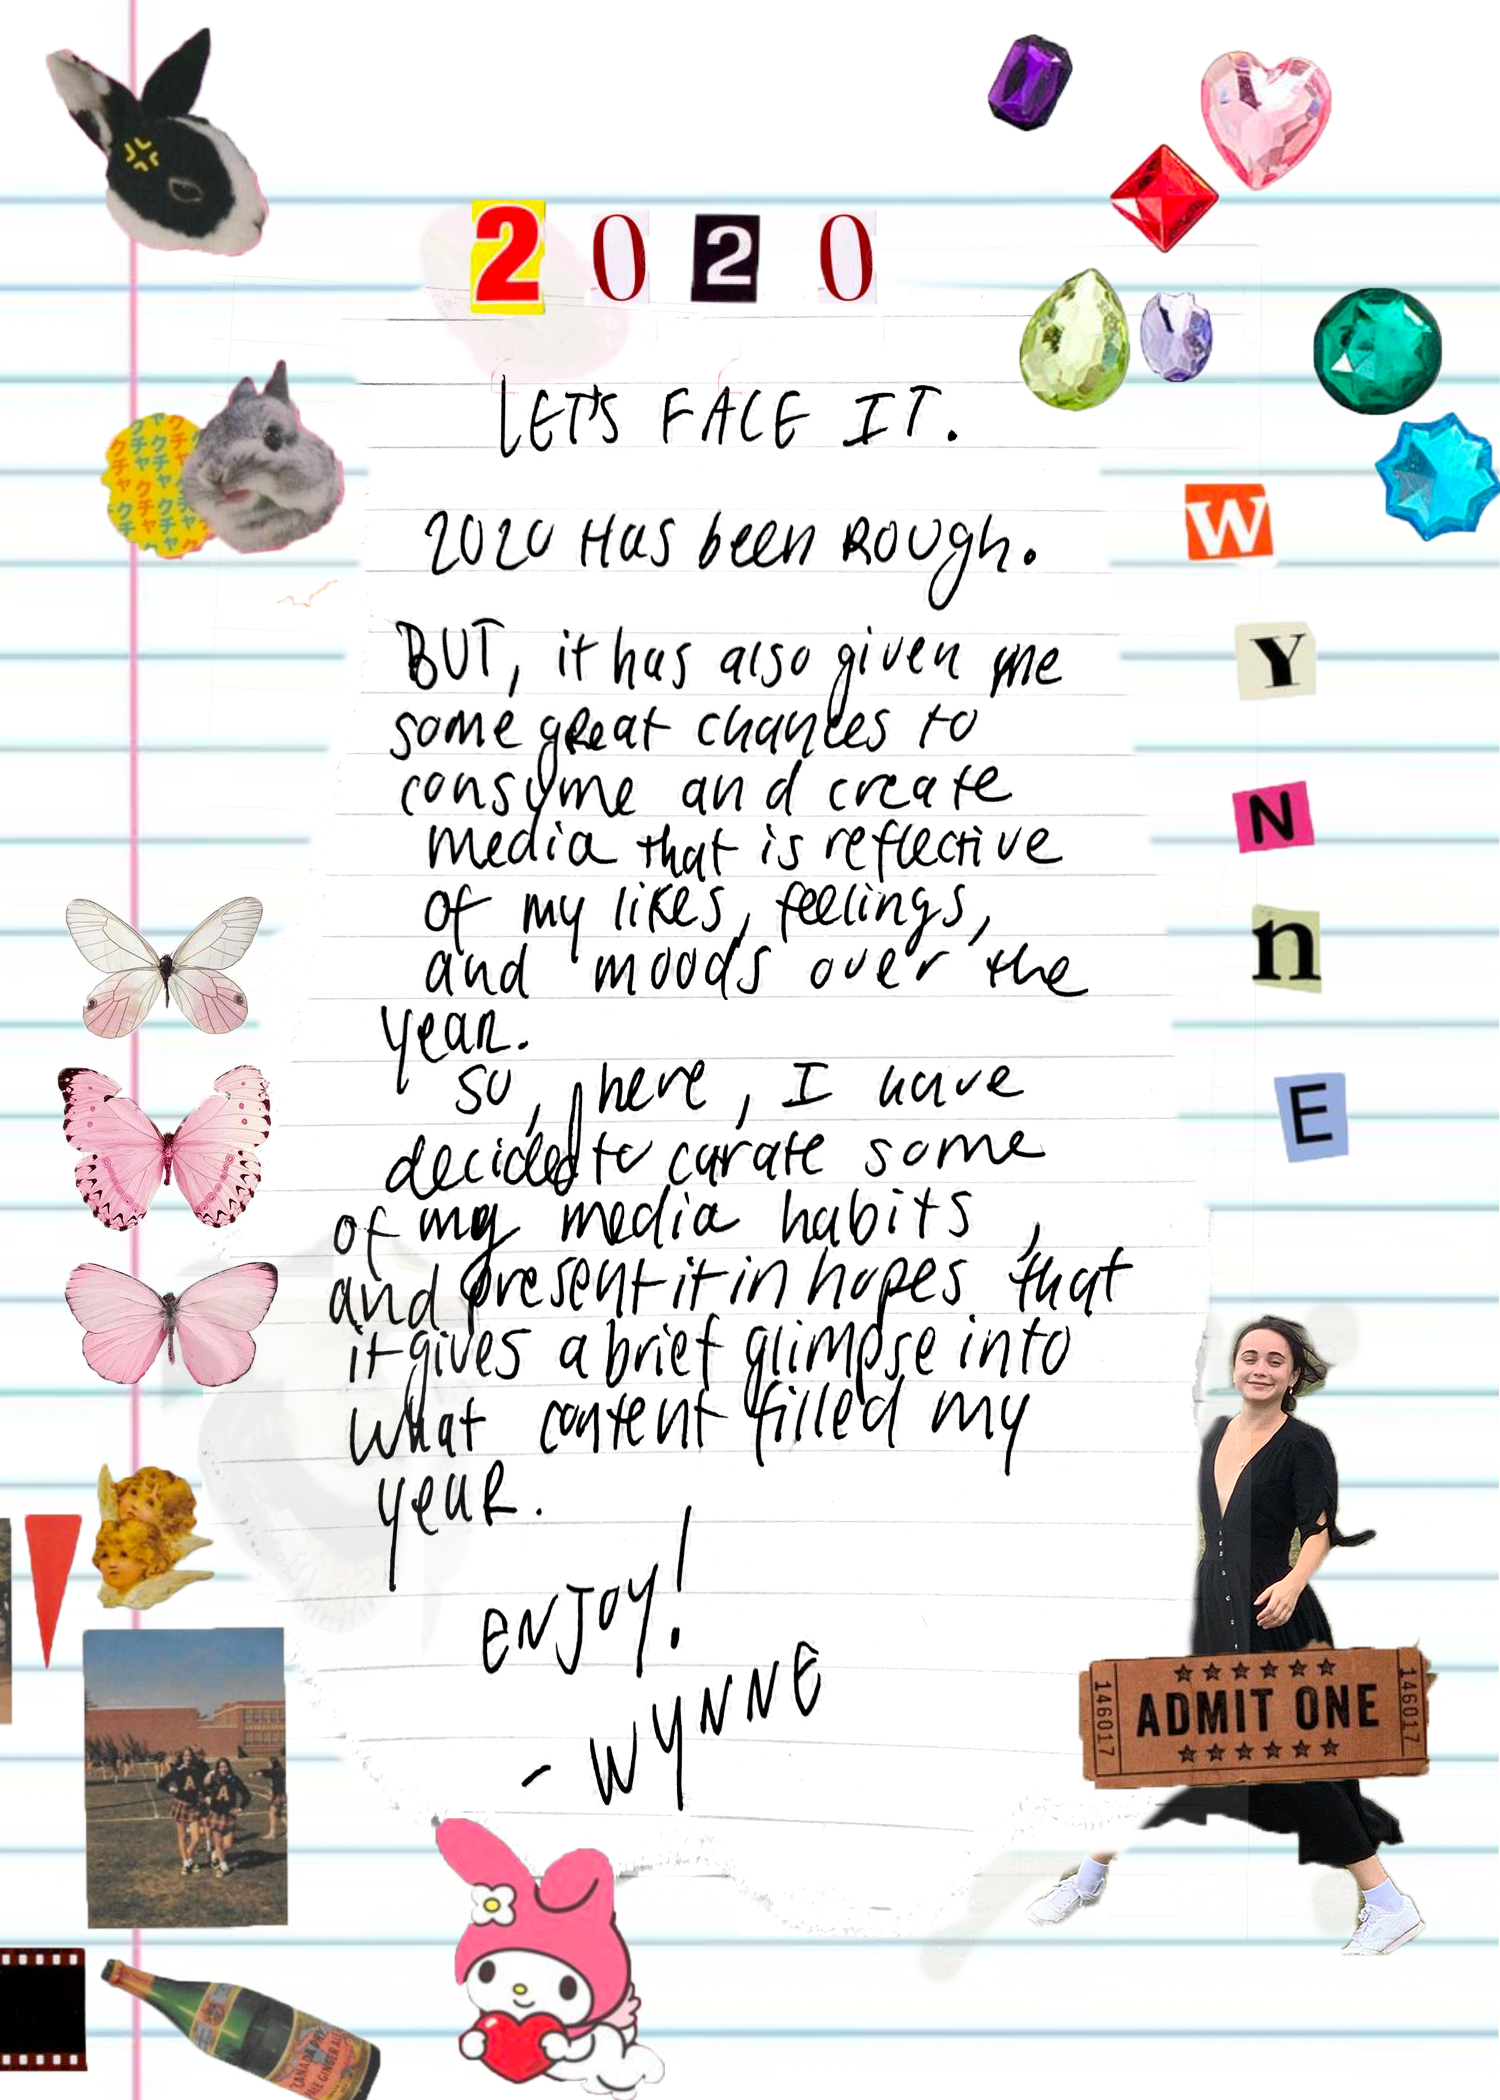 2020
LET'S FACE IT.
2020 HAS been ROUgh.
BUT, it has also given me
some gReat chances to
consume and create
media that is reflective
of my likes, feelings,
and moods over the
yeaR.
SO, here, I have
decided to curate some
of my media habits,
and present it in hopes that
it gives a brief glimpse into
what content filled my
yeaR.
ENJOY!
- WYNNE
W
Y
N
n
E
クチャ クチャ
クチャ クチャ
クチャ クチャ
A A
146017
ADMIT ONE
146017
CANADA DRY
PALE GINGER ALE